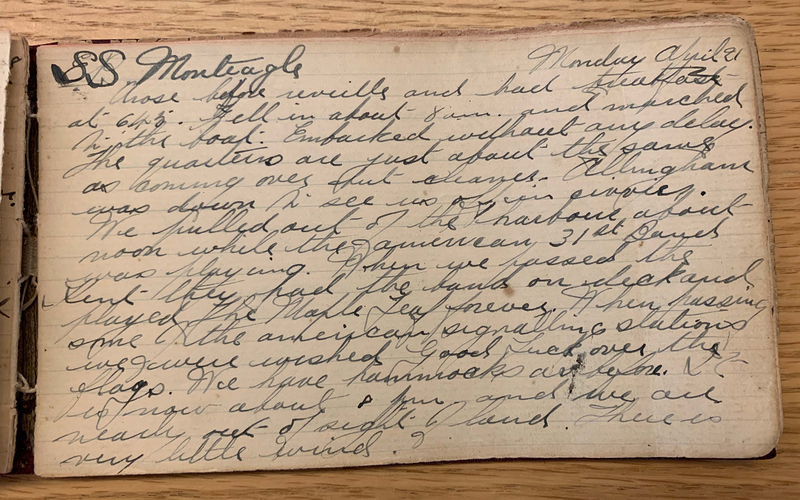 SS Monteagle Monday April 21
Arose before reveille and had breakfast
at 6.45. Fell in about 8 am. and marched
to the boat. Embarked without any delay.
The quarters are just about the same
as coming over but cleaner. Allingham
was down to see us off in civvies.
We pulled out of the harbour about
noon while the American 31st Band
was playing. When we passed the
Kent they had the band on deck and
played The Maple Leaf forever. When passing
some of the american signalling stations
we were wished Good Luck over the
flags. We have hammocks as before.
is now about 8 pm and we are
nearly out of sight of land. There is
very little wind.